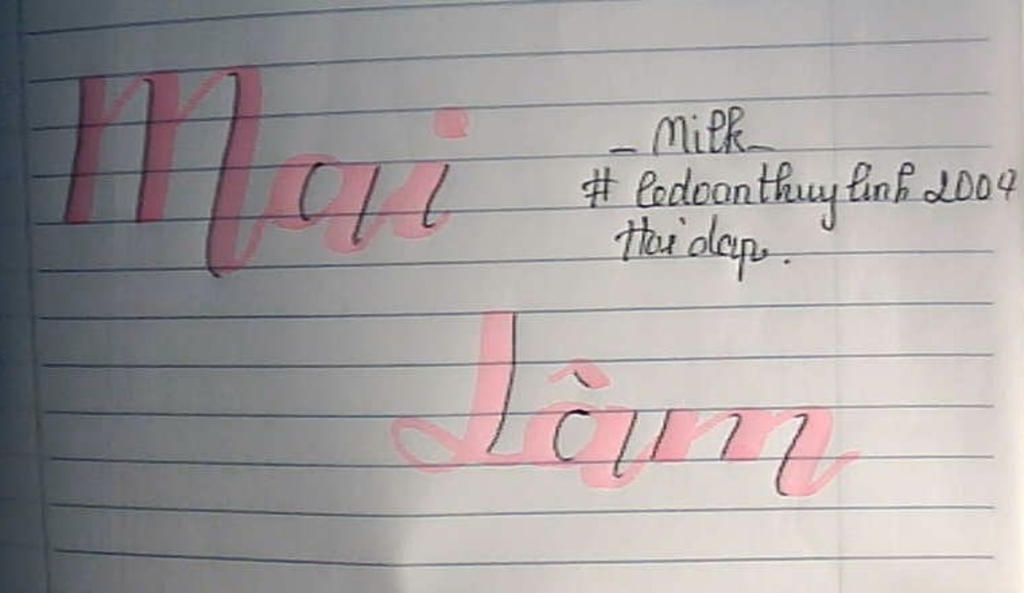 Mai
_ Milk _
# ledoanthuylinh 2004
Hoidap.
Lâm